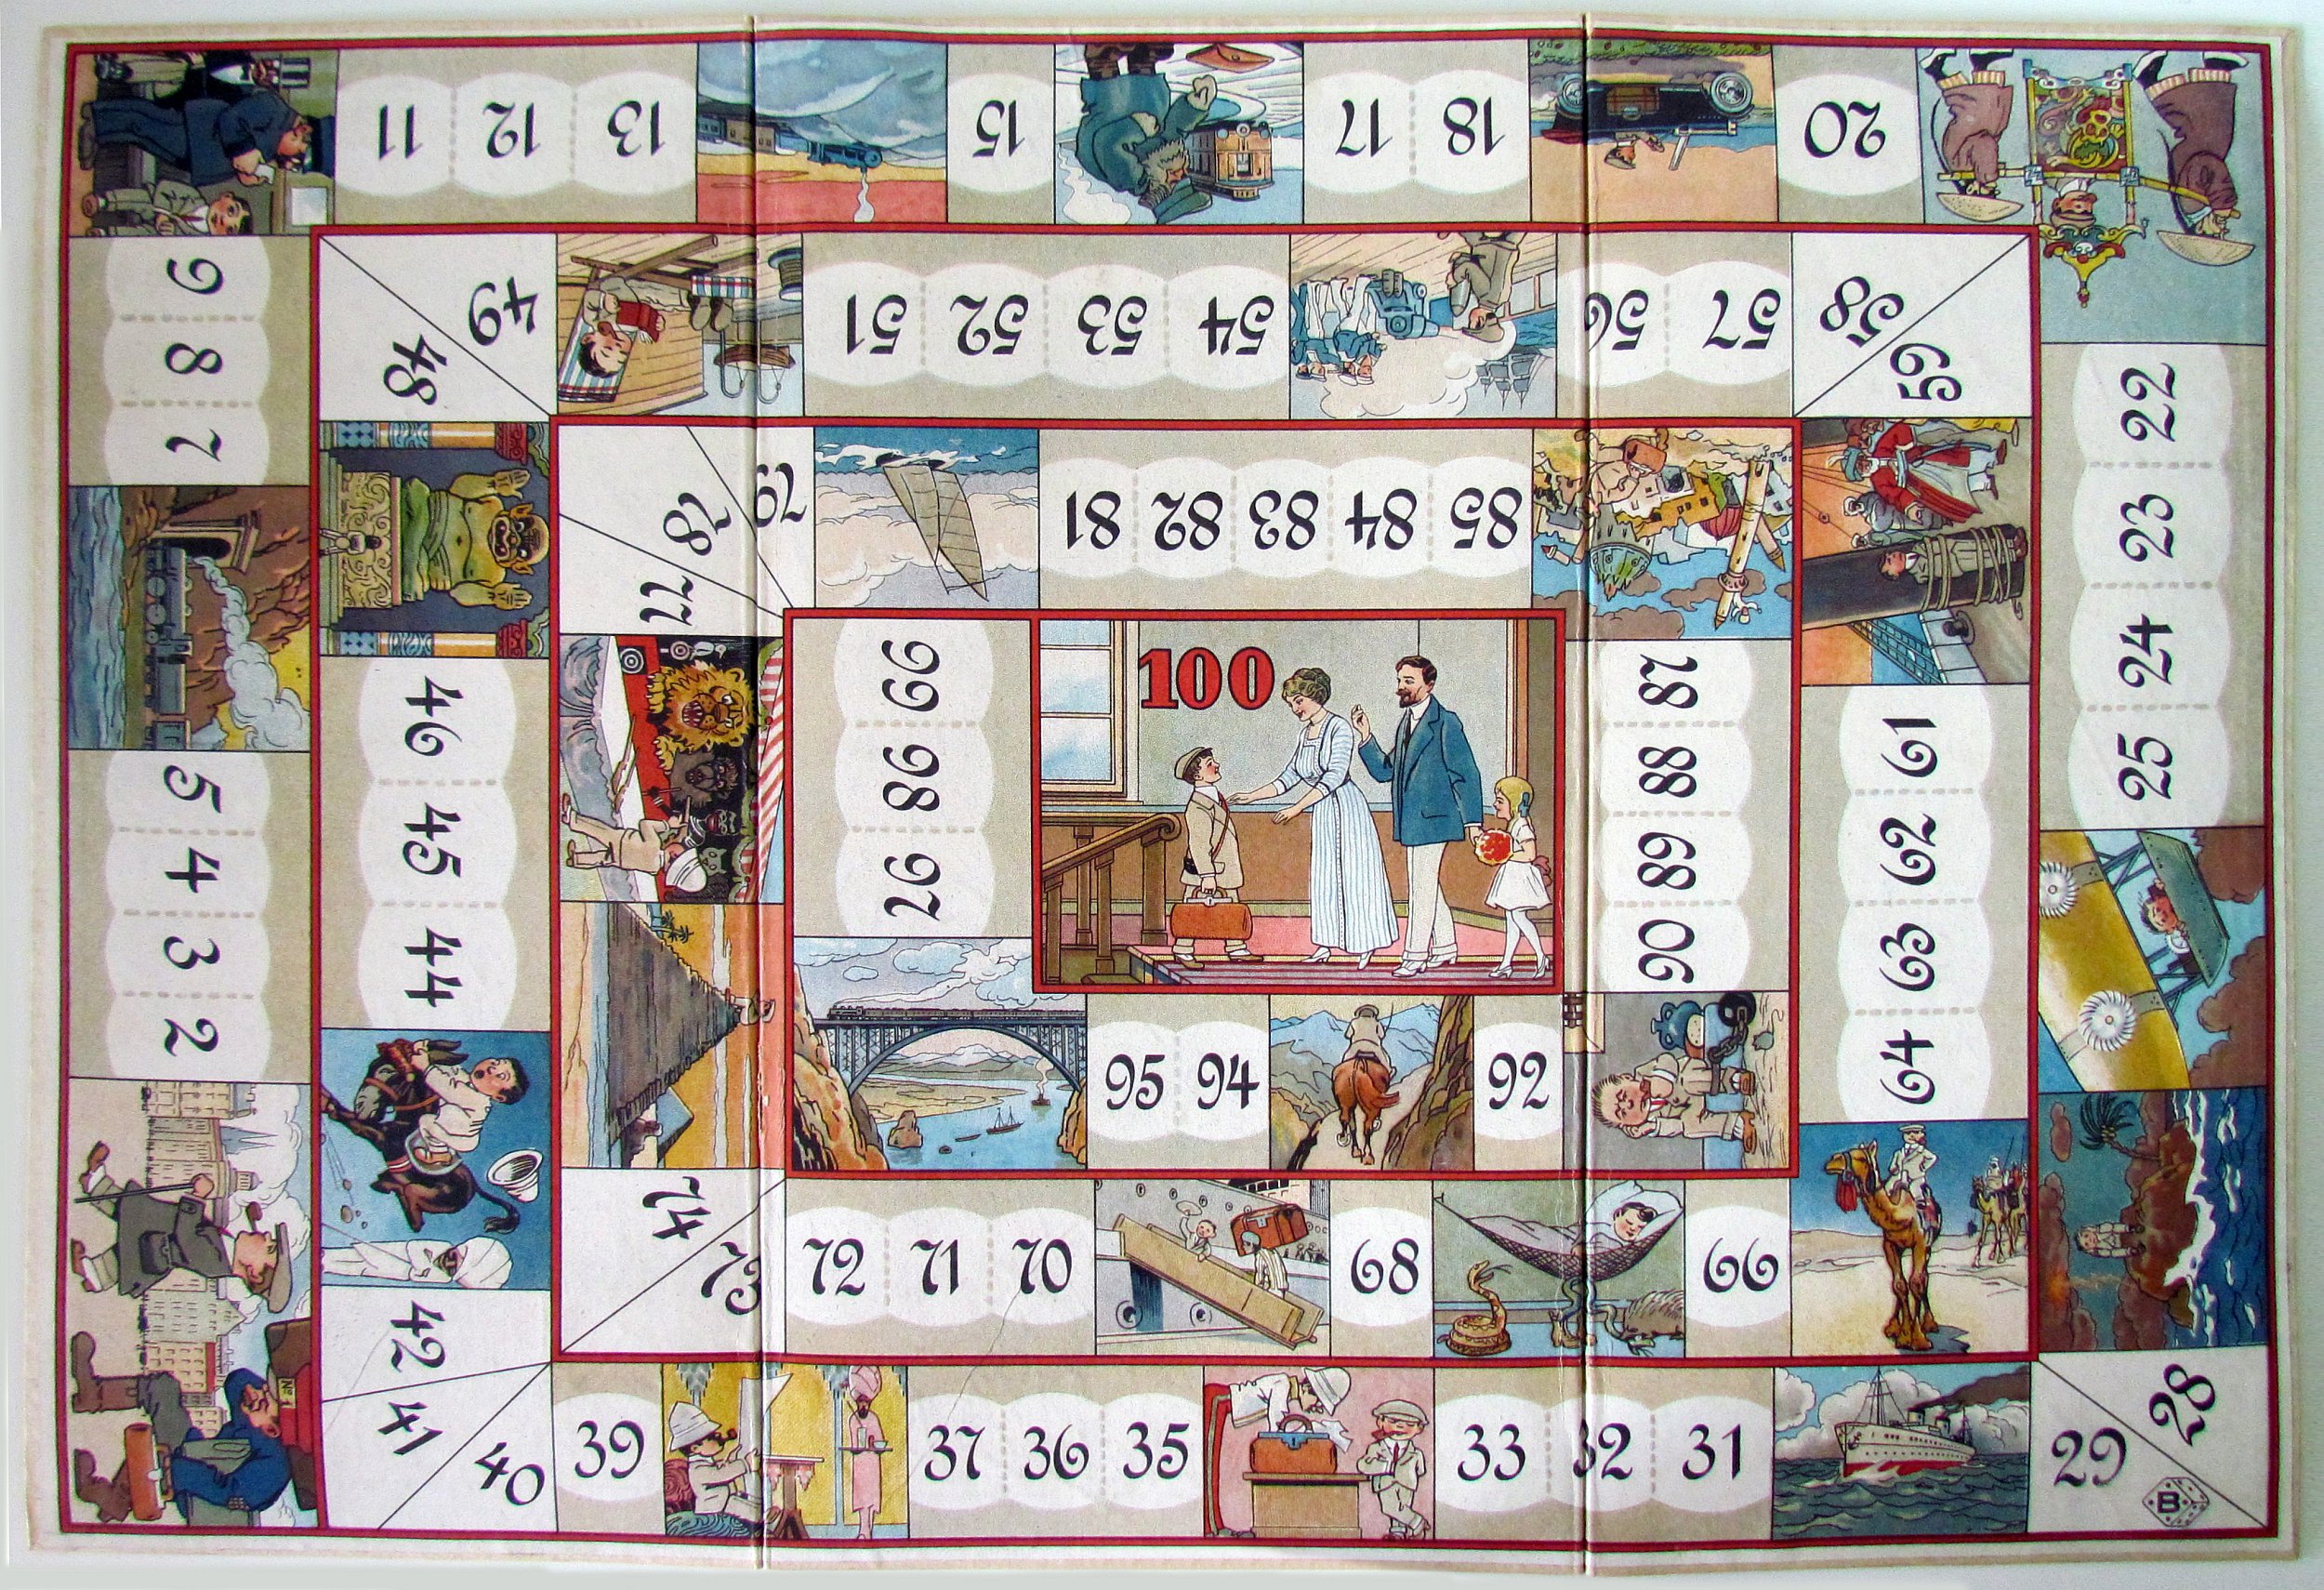 No 1
2
3
4
5
7
8
9
11
12
13
15
17
18
20
22
23
24
25
28
29
B
31
32
33
35
36
37
39
40
41
42
44
45
46
48
49
51
52
53
54
56
57
58
59
61
62
63
64
66
68
70
71
72
73
74
77
78
79
81
82
83
84
85
87
88
89
90
92
94
95
97
98
99
100